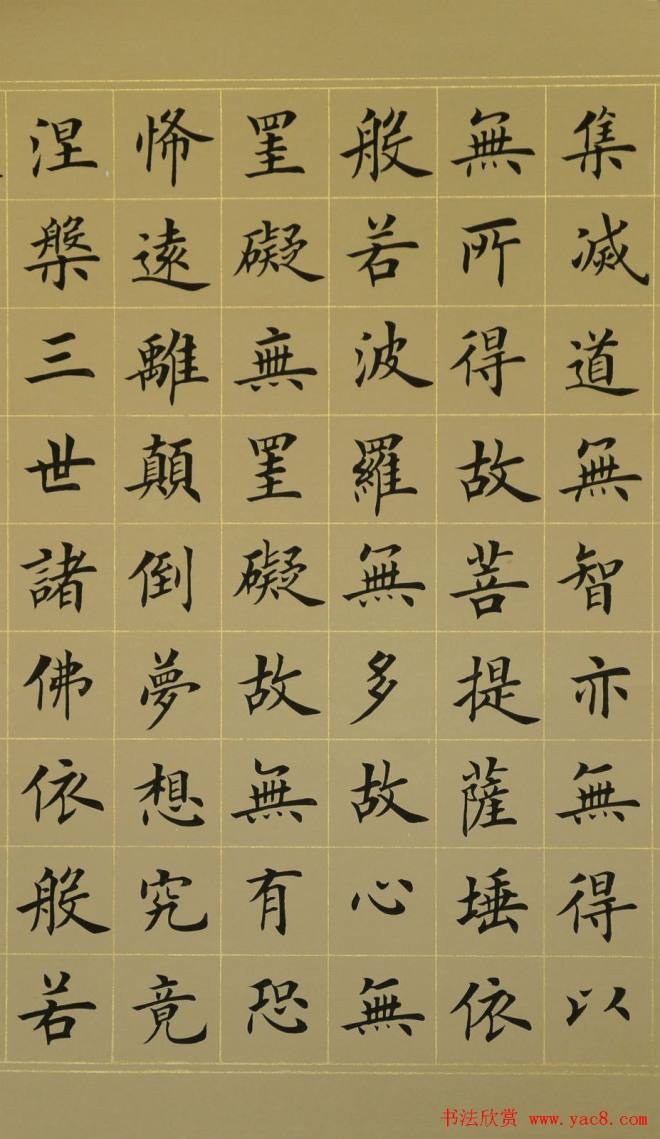 集滅道無智亦無得以
無所得故菩提薩埵依
般若波羅無多故心無
罣礙無罣礙故無有恐
悕遠離顛倒夢想究竟
涅槃三世諸佛依般若
书法欣赏 www.yac8.com